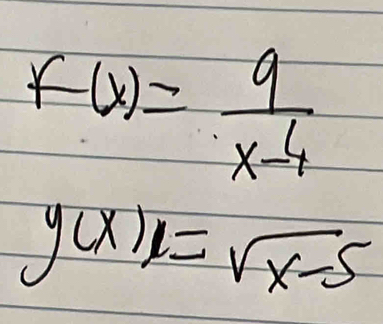 F(x) = 9/(x-4)
y(x) = √(x-5)